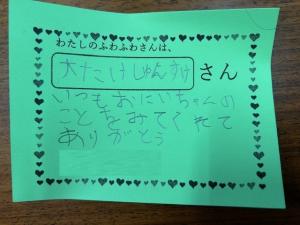 わたしのふわふわさんは、
大たけしゅんすけさん
いつもおにいちゃんの
ことをみてくれて
ありがとう